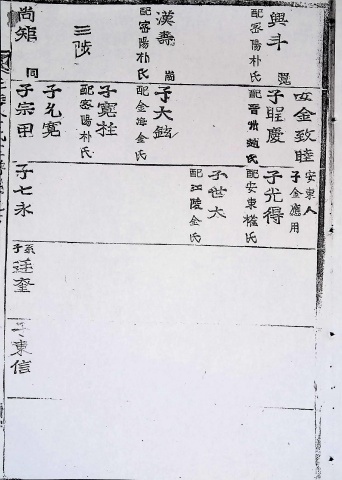 興斗
配密陽朴氏
漢壽
配密陽朴氏
三陟
尚矩
女金致睦
安東人
子金應用
子聖慶
配晋州趙氏
子大鉉
配金海金氏
子寬柱
配密陽朴氏
子允寬
子宗甲
子光得
配安東權氏
子世大
配江陵金氏
子七永
孫廷奎
子東信